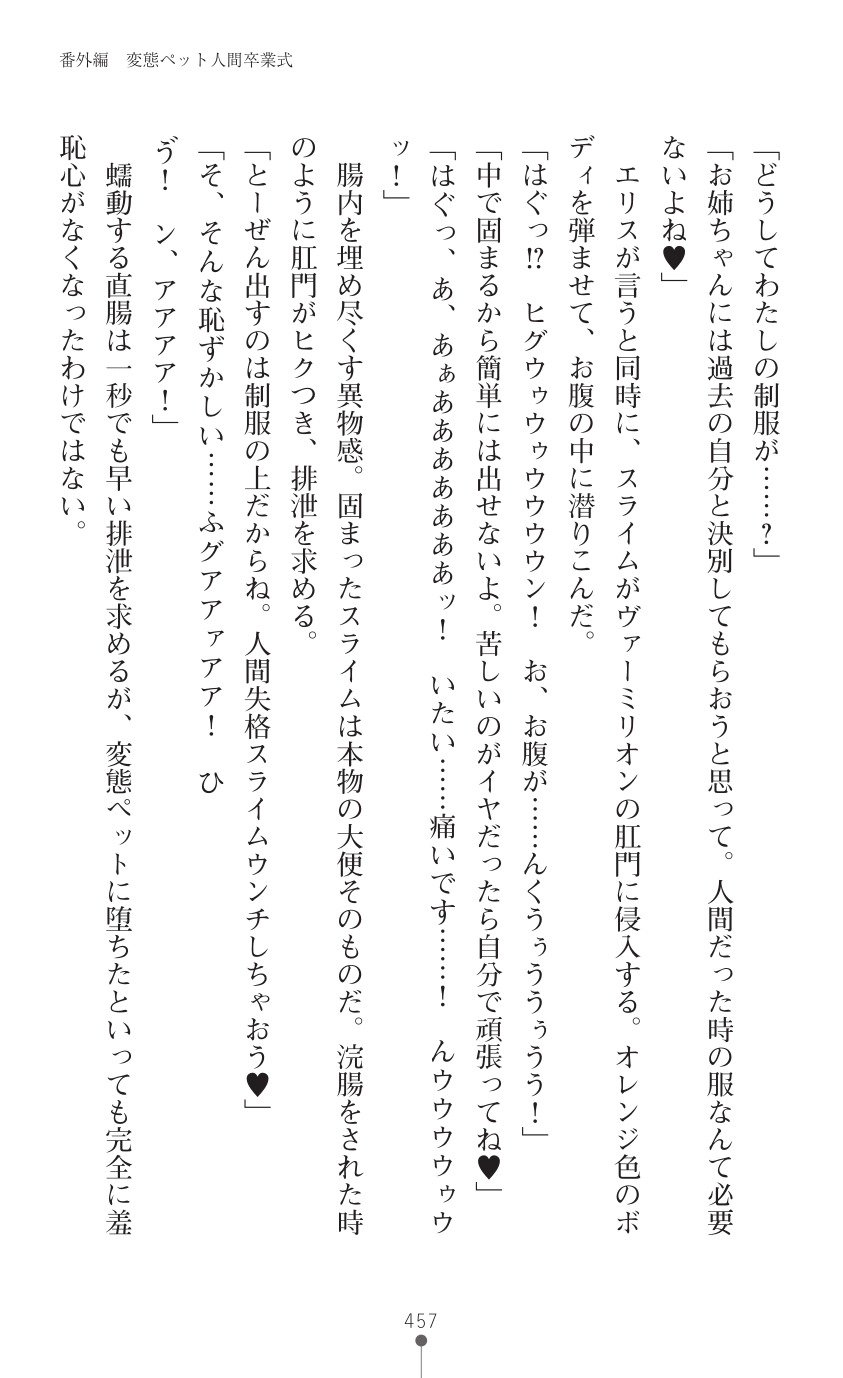 番外編　変態ペット人間卒業式
「どうしてわたしの制服が……？」
「お姉ちゃんには過去の自分と決別してもらおうと思って。人間だった時の服なんて必要
ないよね♥」
　エリスが言うと同時に、スライムがヴァーミリオンの肛門に侵入する。オレンジ色のボ
ディを弾ませて、お腹の中に潜りこんだ。
「はぐっ!?　ヒグウゥウゥウウウウン！　お、お腹が……んくうぅううぅうう！」
「中で固まるから簡単には出せないよ。苦しいのがイヤだったら自分で頑張ってね♥」
「はぐっ、あ、あぁああああああぁッ！　いたい……痛いです……！　んウウウウゥウ
ッ！」
　腸内を埋め尽くす異物感。固まったスライムは本物の大便そのものだ。浣腸をされた時
のように肛門がヒクつき、排泄を求める。
「とーぜん出すのは制服の上だからね。人間失格スライムウンチしちゃおう♥」
「そ、そんな恥ずかしい……ふグアアァアア！　ひ
ゔ！　ン、アアアア！」
　蠕動する直腸は一秒でも早い排泄を求めるが、変態ペットに堕ちたといっても完全に羞
恥心がなくなったわけではない。
457